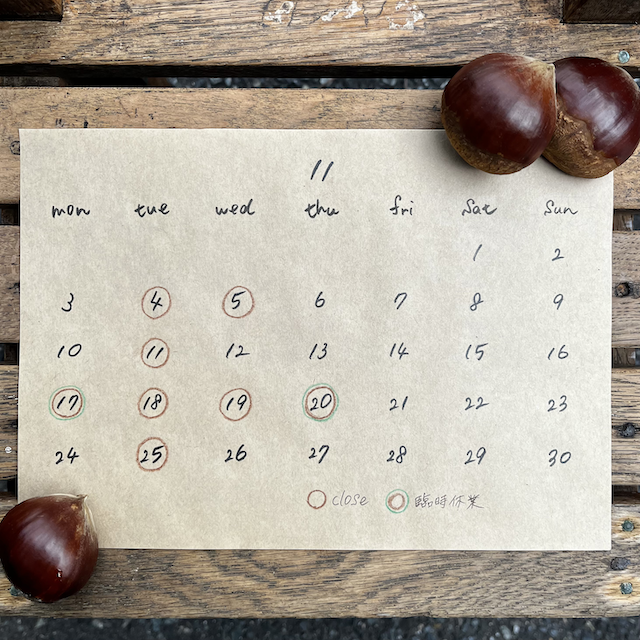 11
mon tue wed thu fri sat sun
1 2
3 4 5 6 7 8 9
10 11 12 13 14 15 16
17 18 19 20 21 22 23
24 25 26 27 28 29 30
close 臨時休業